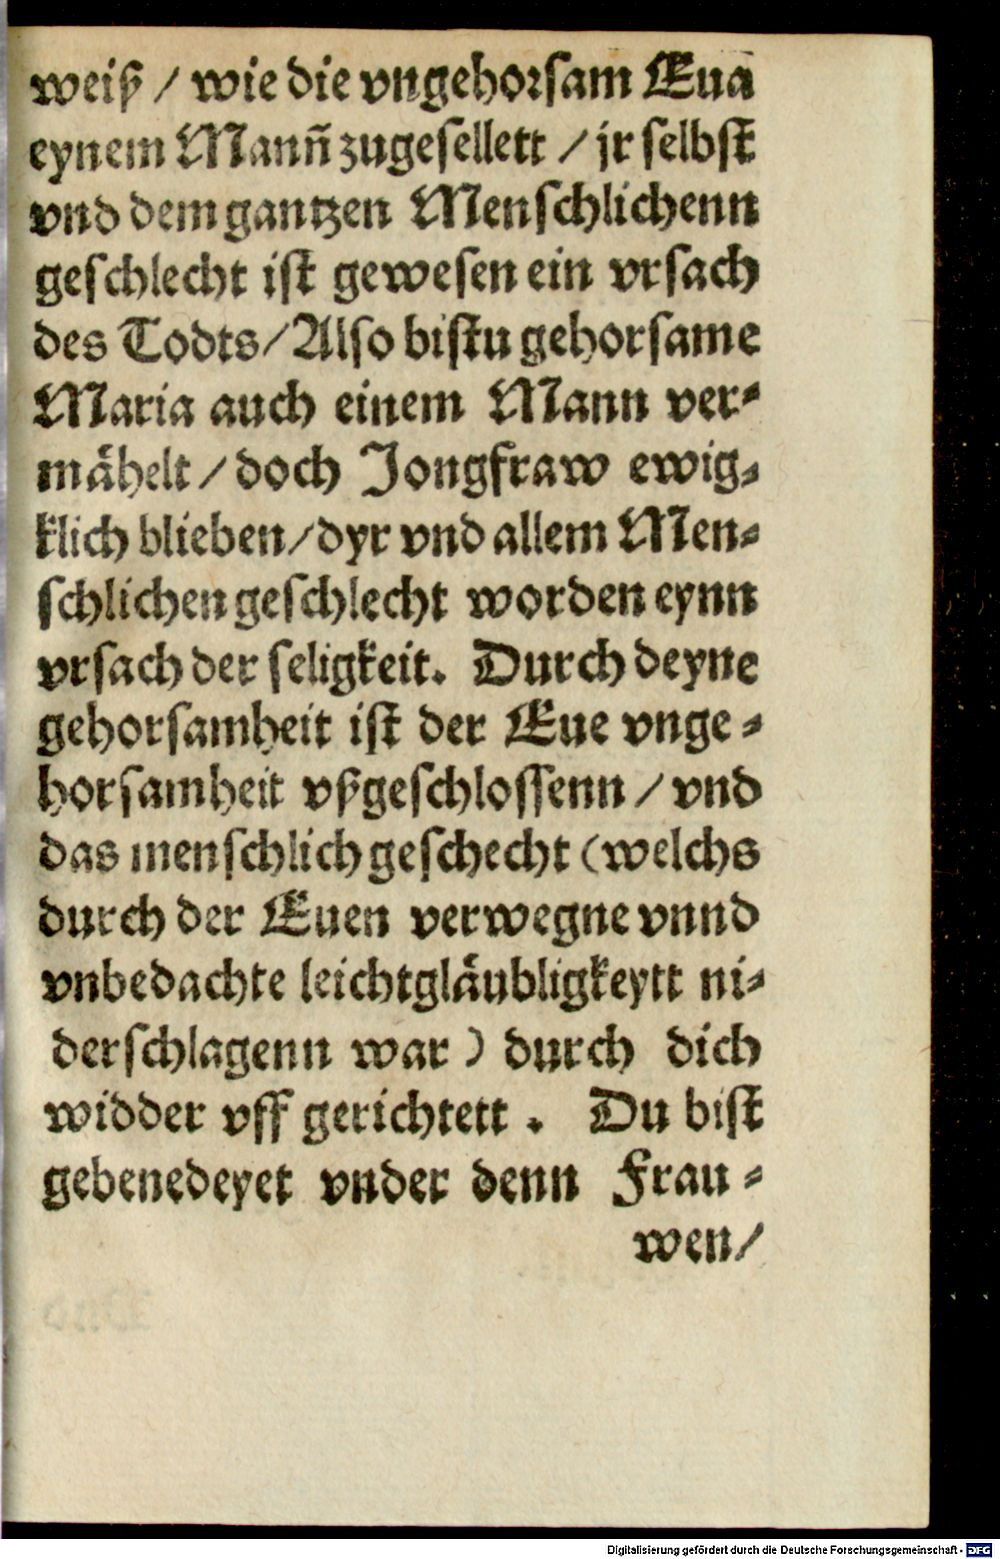 weiß / wie die vngehorsam Eua
eynem Mann̄ zugesellett / jr selbst
vnd dem gantzen Menschlichenn
geschlecht ist gewesen ein vrsach
des Todts / Also bistu gehorsame
Maria auch einem Mann ver⸗
mähelt / doch Jongfraw ewig⸗
klich blieben / dyr vnd allem Men⸗
schlichen geschlecht worden eynn
vrsach der seligkeit. Durch deyne
gehorsamheit ist der Eue vnge⸗
horsamheit vßgeschlossenn / vnd
das menschlich geschecht (welchs
durch der Euen verwegne vnnd
vnbedachte leichtgläubligkeytt ni⸗
derschlagenn war) durch dich
widder vff gerichtett. Du bist
gebenedeyet vnder denn Frau⸗
wen /
Digitalisierung gefördert durch die Deutsche Forschungsgemeinschaft - DFG